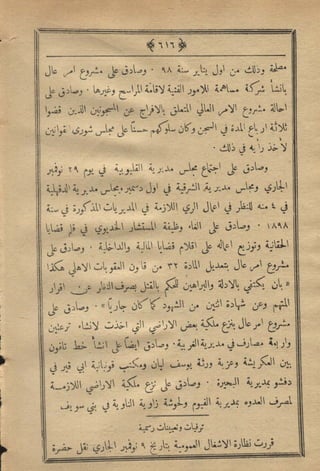 ﴿ ٦١٦ ﴾
مصلحة وذلك من اول يناير سنة ٩٨ . وصادق على مشروع امر عال
بانشأ شركة مساهمة للامور الفنية لاقامة المراسح وغيرها . وصادق على
احالة مشروع الامر العالي المتعلق بالافراج عن المسجونين الذين قضوا
ثلاثة ارباع المدة في السجن وكان سلوكهم حسنًا على مجلس شورى قوانين
لأخذ رأيه في ذلك .
وصادق على اجتماع مجلس مديرية القليوبية في يوم ٢٩ نوفمبر
الجاري ومجلس مديرية الشرقية في اول دسمبر ومجلس مديرية الدقهلية
في ٤ منه للنظر في اعمال الري اللازمة في المديريات المذكورة في سنة
١٨٩٨ . وصادق على الغاء وظيفة المستشار الخديوي في قلم قضايا
الحقانية وتوزيع اعماله على اقلام قضايا المالية والداخلية . وصادق على
مشروع امر عال بتعديل المادة ٣٢ من قانون العقوبات الاهلي هكذا
« بان يكتفي بالادلة والبراهين للحكم بالقتل بصرف النظر عن اقرار
المتهم وعن شهادة اثنين من الشهود كما كان جاريًا » . وصادق على
مشروع امر عال بنزع ملكية بعض الاراضي التي اخذت لانشاء ترعتين
واربعة مصارف في مديرية الغربية . وصادق ايضًا على انشأ خط تلفون
بين العكريشة وعزبة ورثة يوسف ليان ومكتب قوبانية ابي قير في
دفشو بمديرية البحيرة . وصادق على نزع ملكية الاراضي اللازمة
لمصرف العدوه بمديرية الفيوم ولحوشة زاوية الناوية في بني سويف
ترقيات وتعيينات رسمية
قررت نظارة الاشغال العمومية بتاريخ ٩ نوفمبر الجاري نقل حضرة